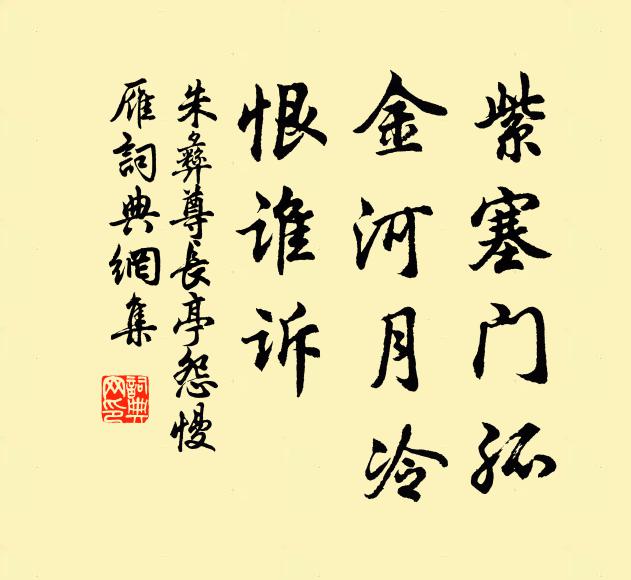 紫塞门孤
金河月冷
恨谁诉
朱彝尊長亭怨慢
雁詞典網集
詞典网印